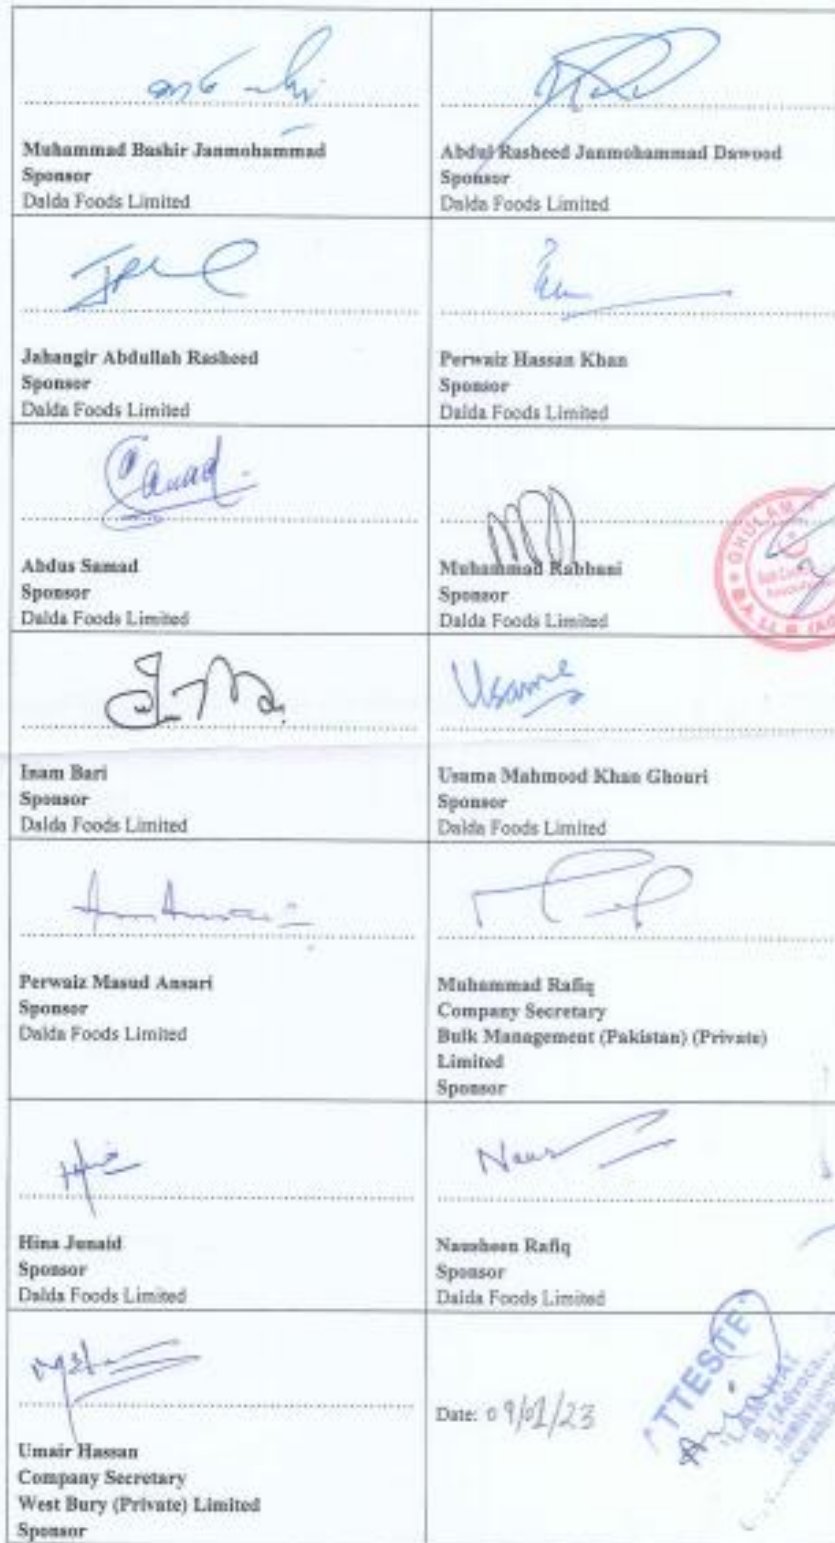 Muhammad Bashir Janmohammad
Sponsor
Dalda Foods Limited
Abdul Rasheed Janmohammad Dawood
Sponsor
Dalda Foods Limited
Jahangir Abdullah Rasheed
Sponsor
Dalda Foods Limited
Perwaiz Hassan Khan
Sponsor
Dalda Foods Limited
Abdus Samad
Sponsor
Dalda Foods Limited
Muhammad Rabbani
Sponsor
Dalda Foods Limited
GHULAM
B.A. LL.B
Inam Bari
Sponsor
Dalda Foods Limited
Usama
Usama Mahmood Khan Ghouri
Sponsor
Dalda Foods Limited
Perwaiz Masud Ansari
Sponsor
Dalda Foods Limited
Muhammad Rafiq
Company Secretary
Bulk Management (Pakistan) (Private)
Limited
Sponsor
Hina Junaid
Sponsor
Dalda Foods Limited
Nausheen Rafiq
Sponsor
Dalda Foods Limited
Umair Hassan
Company Secretary
West Bury (Private) Limited
Sponsor
Date: 09/01/23
ATTESTE